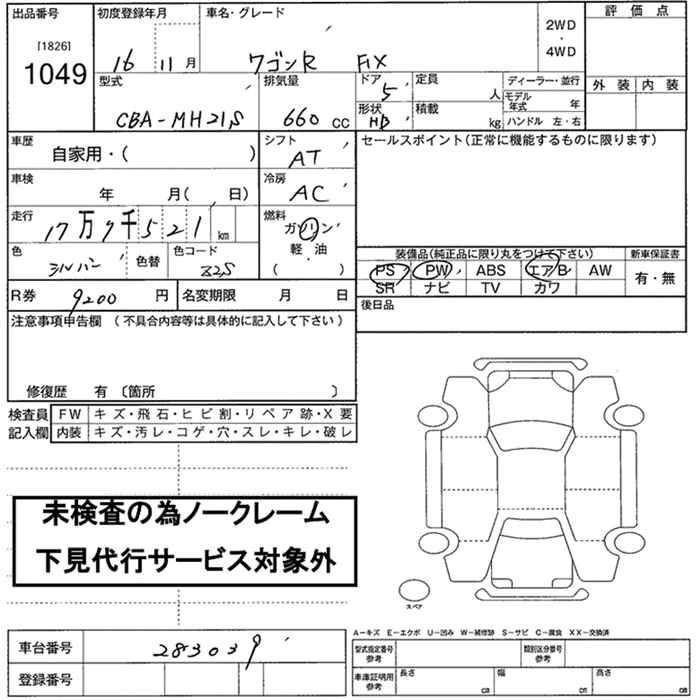 出品番号 初度登録年月 車名・グレード 評価点
[1826]
1049
16 11 月 ワゴンR FX
2WD
・
4WD
型式 排気量 ドア 5 定員 人 ディーラー・並行 外装 内装
モデル年式 年
CBA-MH21S 660 CC 形状 HB 積載 kg ハンドル 左・右
車歴 自家用・( ) シフト AT セールスポイント(正常に機能するものに限ります)
車検 年 月( 日) 冷房 AC
走行 17万7千521 km 燃料 ガソリン・
軽・油
( )
色 シルバー 色替 色コード Z2S
装備品(純正品に限り丸をつけて下さい) 新車保証書
PS PW ABS エアB AW 有・無
SR ナビ TV カワ
R券 9200 円 名変期限 月 日 後日品
注意事項申告欄 (不具合内容等は具体的に記入して下さい)
修復歴 有 〔箇所 〕
検査員 FW キズ・飛石・ヒビ割・リペア跡・X要
記入欄 内装 キズ・汚レ・コゲ・穴・スレ・キレ・破レ
未検査の為ノークレーム
下見代行サービス対象外
スペア
A-キズ E-エクボ U-凹み W-補修跡 S-サビ C-腐食 XX-交換済
車台番号 283039 型式指定番号 参考 類別区分番号 参考
登録番号 車庫証明用 参考 長さ cm 幅 cm 高さ cm